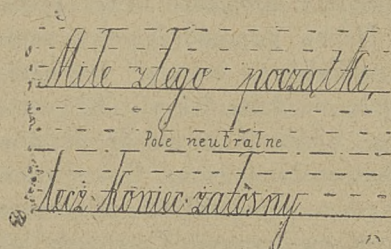 Miłe złego początki,
Pole neutralne
lecz koniec żałosny.